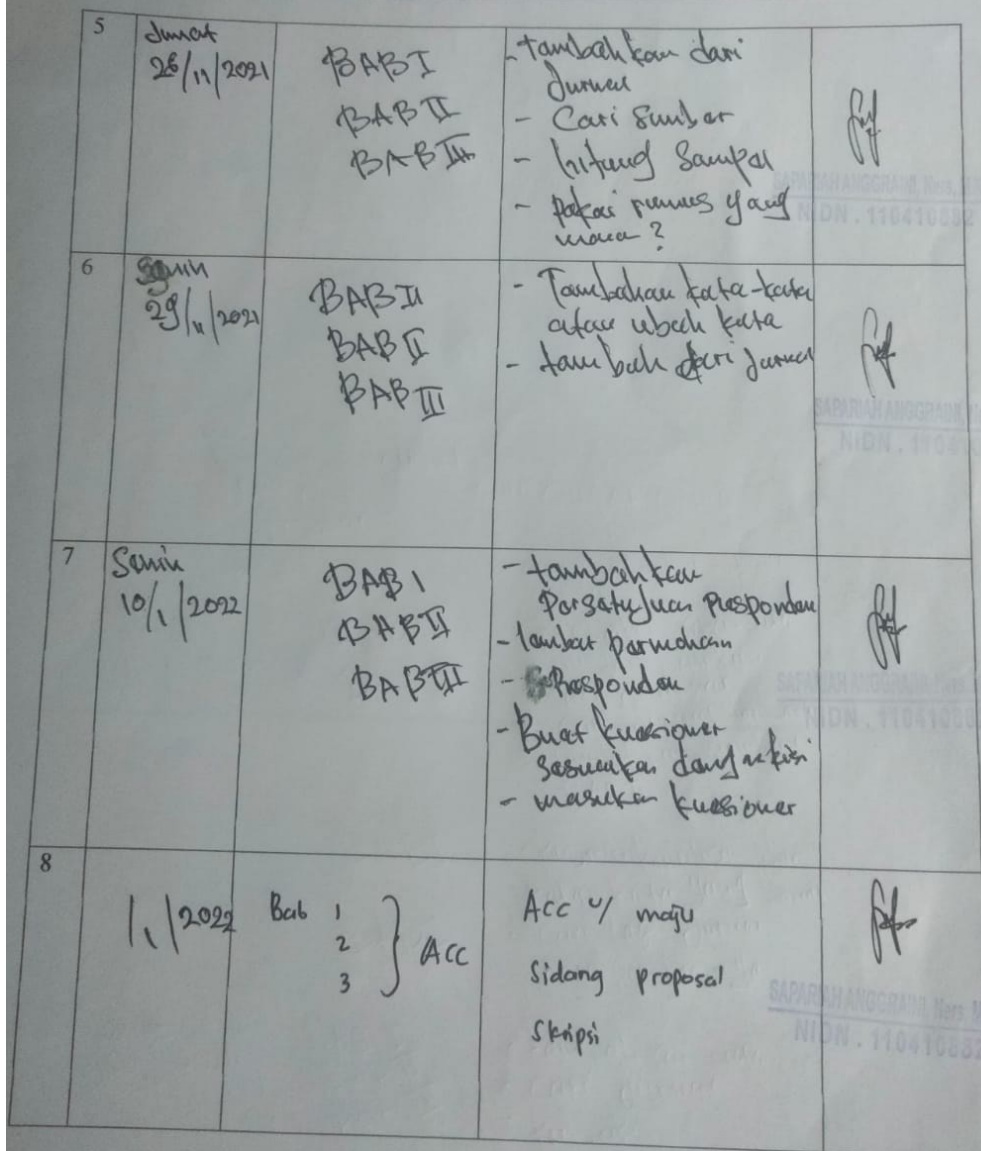 5
Jumat
26/11/2021
BAB I
BAB II
BAB III
- tambahkan dari
Jurnal
- Cari Sumber
- hitung Sampel
- pakai rumus yang
mana ?
SAPARIAH ANGGRAINI, Ners, M
NIDN . 110410882
6
Senin
29/11/2021
BAB II
BAB II
BAB III
- Tambahan kata-kata
atau ubah kata
- tambah dari jurnal
SAPARIAH ANGGRAINI
NIDN . 1104
7
Senin
10/1/2022
BAB I
BAB II
BAB III
- tambahkan
Persetujuan Responden
- lembar permohonan
- Responden
- Buat kuesioner
sesuaikan dengan kisi
- masukan kuesioner
SAPARIAH ANGGRAINI, Ners
NIDN . 11041088
8
/1/2022
Bab 1
2
3
ACC
Acc u/ maju
Sidang proposal
Skripsi
SAPARIAH ANGGRAINI, Ners M
NIDN . 110410882